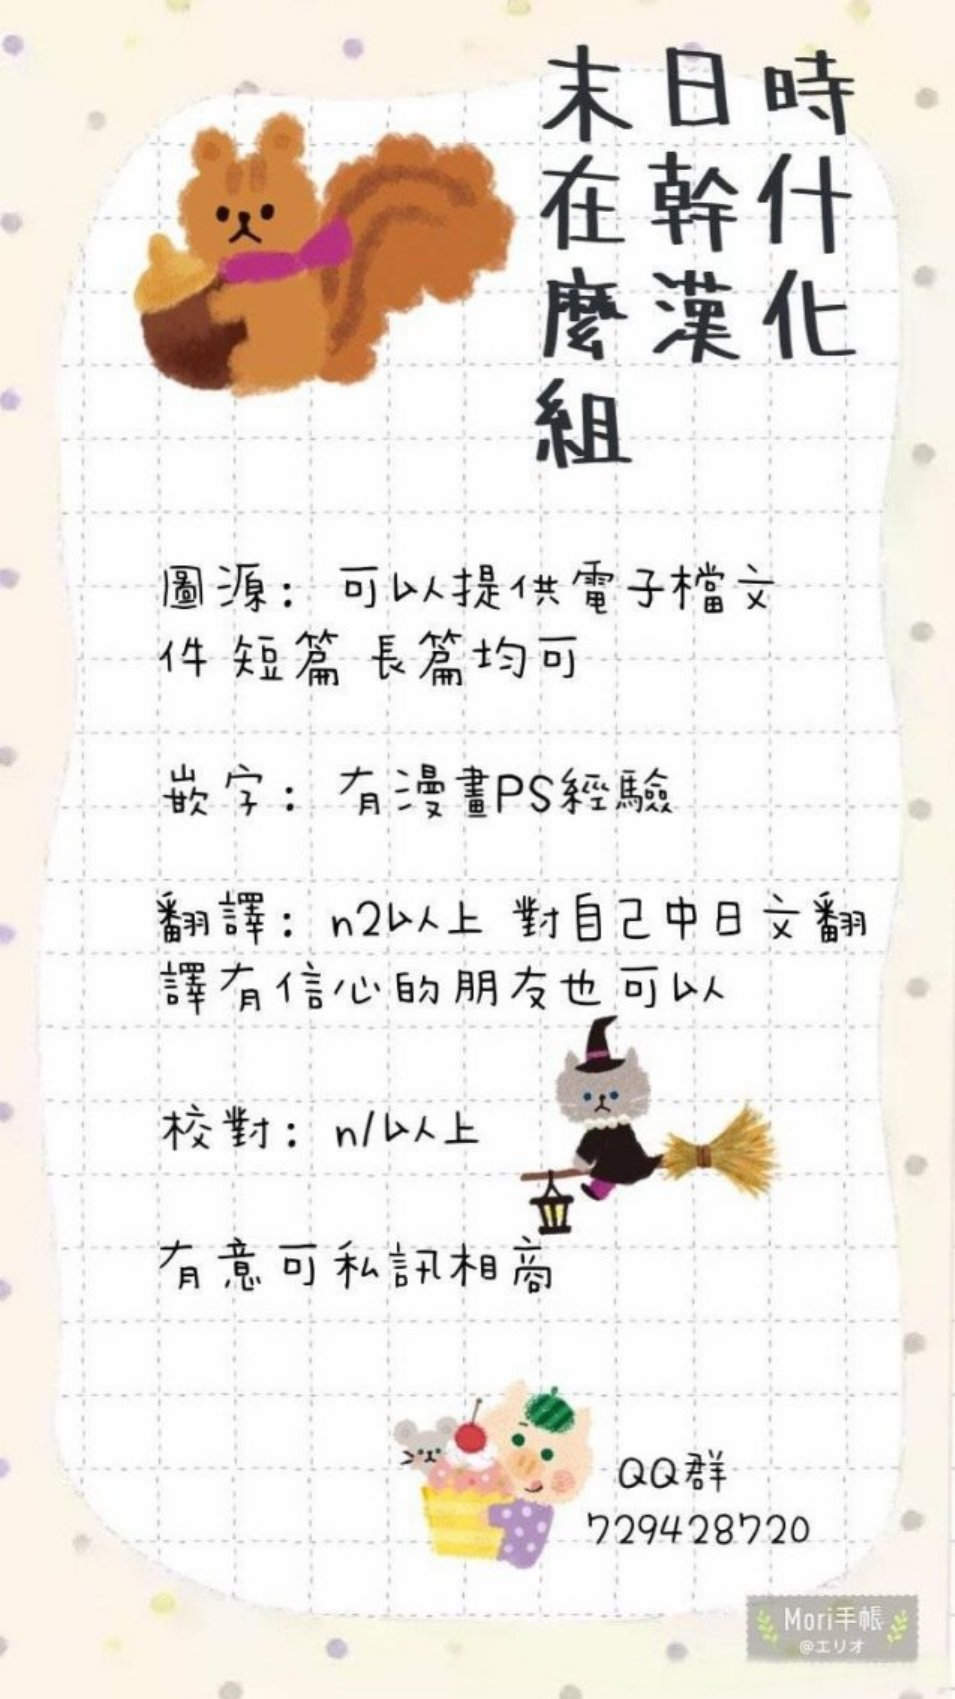 末日時
在幹什
麼漢化
組
圖源： 可以提供電子檔文
件 短篇 長篇均可
嵌字： 有漫畫PS經驗
翻譯： n2以上 對自己中日文翻
譯有信心的朋友也可以
校對： n1以上
有意可私訊相商
QQ群
729428720
Mori手帳
@エリオ